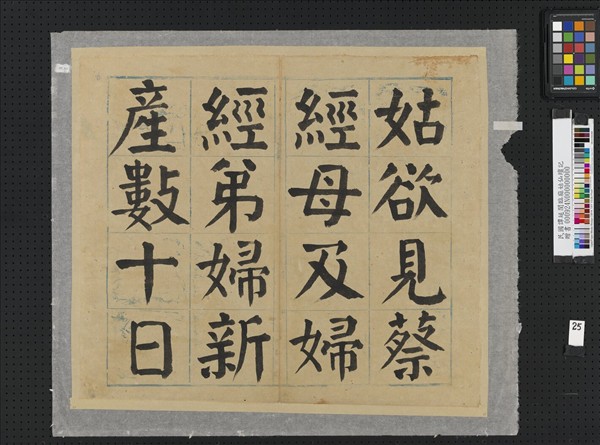 姑欲見蔡
經母及婦
經弟婦新
產數十日
25